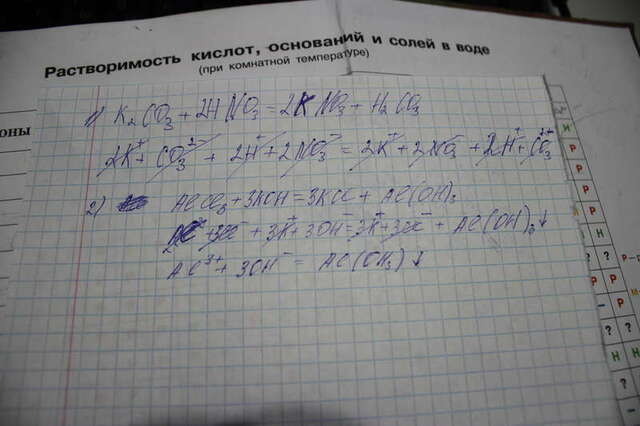 Растворимость кислот, оснований и солей в воде
(при комнатной температуре)
оны
1) K₂CO₃ + 2HNO₃ = 2KNO₃ + H₂CO₃
2K⁺ + CO₃²⁻ + 2H⁺ + 2NO₃⁻ = 2K⁺ + 2NO₃⁻ + 2H⁺ + CO₃²⁻
2) AlCl₃ + 3KOH = 3KCl + Al(OH)₃
Al³⁺ + 3Cl⁻ + 3K⁺ + 3OH⁻ = 3K⁺ + 3Cl⁻ + Al(OH)₃↓
Al³⁺ + 3OH⁻ = Al(OH₃)↓